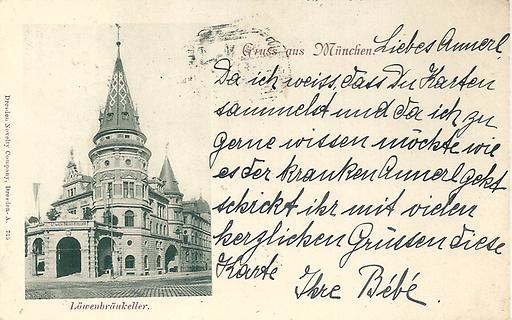 Gruss aus München.
Liebes Annerl,
Da ich weiss, dass Du Karten
sammelst und da ich zu
gerne wissen möchte wie
es der kranken Annerl geht
schickt ihr mit vielen
herzlichen Grüssen diese
Karte
Ihre Bébé.
Löwenbräukeller.
Dresden Novelty Company, Dresden-A. 715